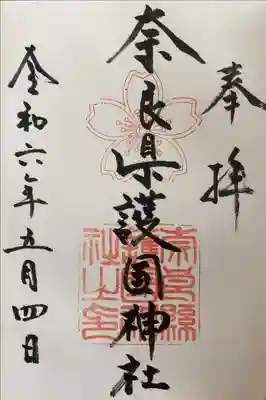 奉拝
奈良県護國神社
令和六年五月四日
奈良縣護國神社之印